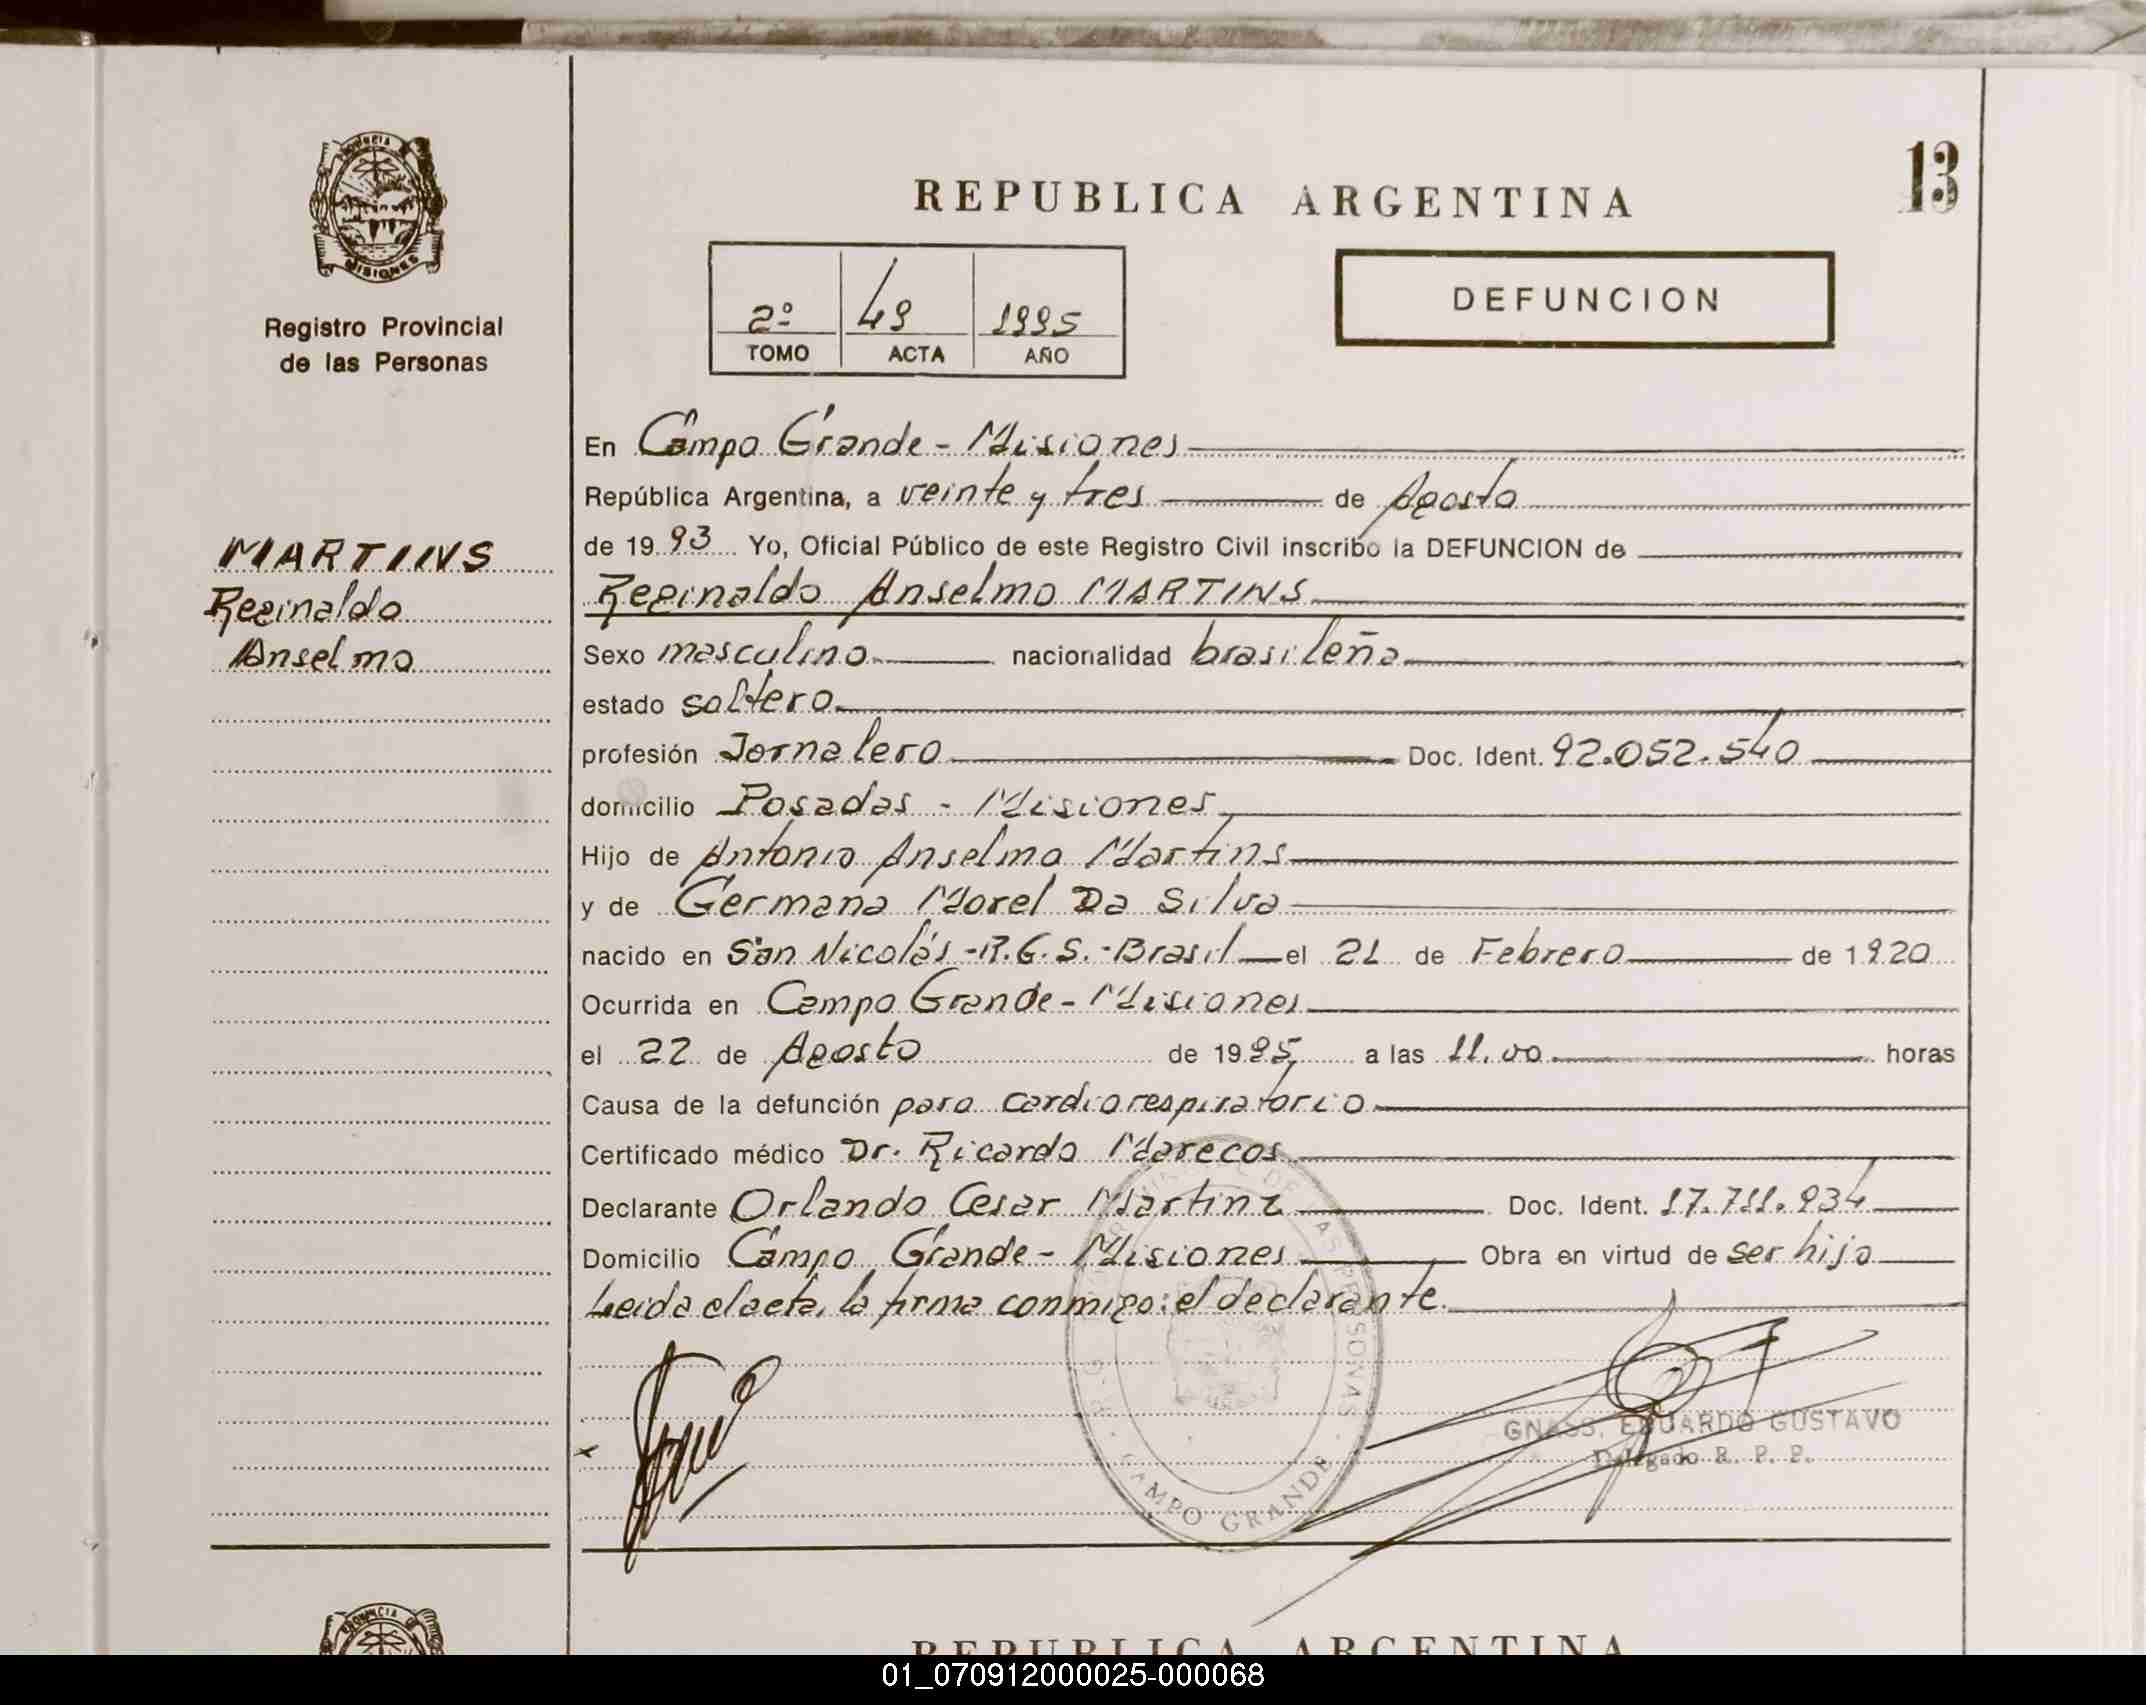 PROVINCIA
MISIONES
Registro Provincial
de las Personas
MARTINS
Reginaldo
Anselmo
REPUBLICA ARGENTINA
13
2º 49 1995
TOMO ACTA AÑO
DEFUNCION
En Campo Grande - Misiones
República Argentina, a veinte y tres de Agosto
de 1993 Yo, Oficial Público de este Registro Civil inscribo la DEFUNCION de
Reginaldo Anselmo MARTINS
Sexo masculino nacionalidad brasileña
estado soltero
profesión Jornalero Doc. Ident. 92.052.540
domicilio Posadas - Misiones
Hijo de Antonio Anselmo Martins
y de Germana Morel Da Silva
nacido en San Nicolás - R.G.S. - Brasil el 21 de Febrero de 1920
Ocurrida en Campo Grande - Misiones
el 22 de Agosto de 1995 a las 11.00 horas
Causa de la defunción paro cardiorespiratorio
Certificado médico Dr. Ricardo Marecos
Declarante Orlando Cesar Martinz Doc. Ident. 17.711.934
Domicilio Campo Grande - Misiones Obra en virtud de ser hijo
Leida el acta, la firma conmigo: el declarante.
DE LAS PERSONAS
CAMPO GRANDE
GNASS, EDUARDO GUSTAVO
Delegado R. P. P.
PROVINCIA DE
REPUBLICA ARGENTINA
01_070912000025-000068